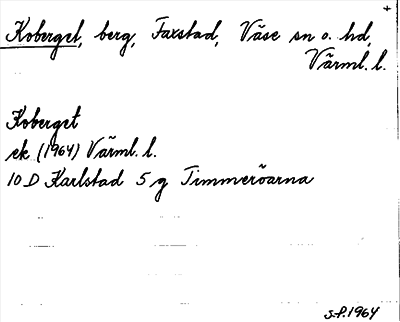 +
Koberget, berg, Faxstad, Väse sn o. hd,
Värml. l.
Koberget
ek (1964) Värml. l.
10 D Karlstad 5 g Timmeröarna
S.P. 1964